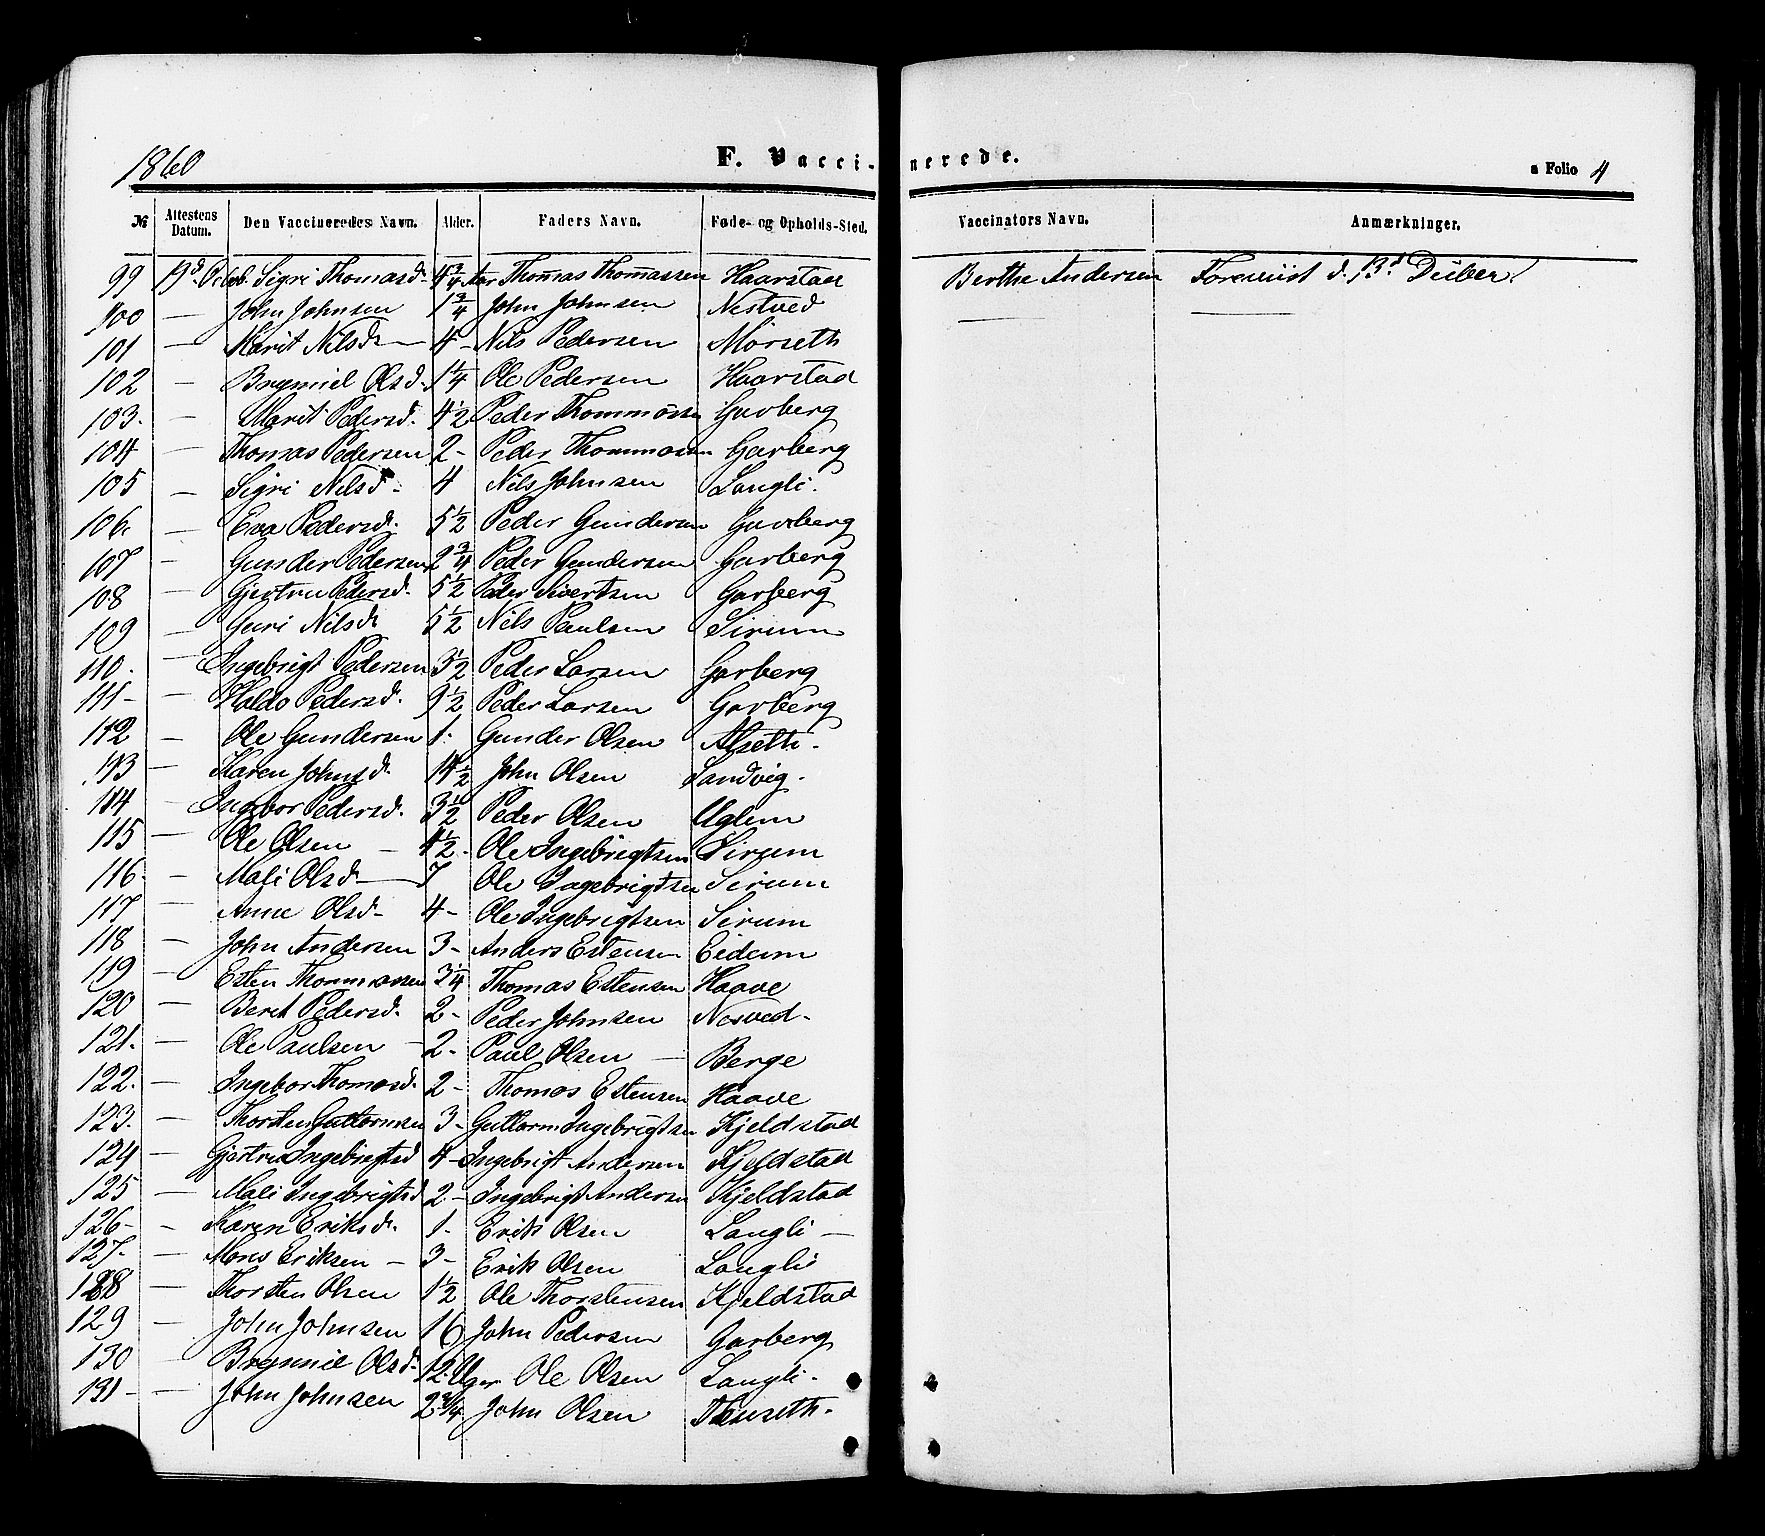 1860 F. Vacci- nerede. Folio 4
№ Attestens Datum. Den Vaccineredes Navn. Alder. Faders Navn. Føde- og Opholds-Sted. Vaccinators Navn. Anmærkninger.
99 19d Octob. Sigri Thomasd. 4 3/4 Aar Thomas Thomassen Haarstad Berthe Andersen Foreviist d. 13d
100 — John Johnsen 1 3/4 John Johnsen Nestved — —
101 — Marit Nilsd — 4 - Nils Pedersen Mörseth
102 — Brynniel Olsd. 1 1/4 Ole Pedersen Haarstad
103. — Marit Pedersd. 4 1/2 Peder Garberg
104 — Thomas Pedersen 2 - Peder Garberg
105 — Sigri Nilsd - 4 Nils Johnsen Langli.
106. — Eva Pedersd. 5 1/2 Peder Gundersen Garberg
107 — Gunder Pedersen 2 3/4 Peder Gundersen Garberg
108 — Gjertru Pedersd. 5 1/2 Peder Sivertsen Garberg
109 — Guri Nilsd 5 1/2 Nils Paulsen Sirum
110. — Ingebrigt Pedersen 3 1/2 Peder Larsen Garberg
111 - — Haldo Pedersd. 9 1/2 Peder Larsen Garberg
112 — Ole Gundersen 1. Gunder Olsen Alseth.
113 — Karen Johnsd. John Olsen Sandvig.
114 — Ingebor Pedersd. 3 1/2 Peder Olsen Uglem
115 — Ole Olsen — Ole Ingebrigtsen Sirum
116. — Mali Olsd — 7 Ole Ingebrigtsen Sirum
117 — Anne Olsd - 4 - Ole Ingebrigtsen Sirum
118 — John Andersen 3 - Anders Estensen Eidem
119 — Esten Thommassen 3 1/4 Thomas Estensen Haave
120 — Berit Pedersd. 2 - Peder Johnsen Nesved -
121. — Ole Paulsen — 2 - Paul Olsen — Berge
122. — Ingebor Thomasd. 2 - Thomas Estensen Haave
123. — Thorsten Guttormsen 3 - Guttorm Ingebrigtsen Kjeldstad
124 — Gjertru Ingebrigtsd 4 - Ingebrigt Andersen Kjeldstad
125 — Mali Ingebrigtsd 2 - Ingebrigt Andersen Kjeldstad
126 - — Karen Eriksd. 1 - Erik Olsen Langli —
127. — Mons Eriksen — 3 - Erik Olsen Langli
128 — Thorsten Olsen 1 1/2 Ole Thorstensen Kjeldstad
129 — John Johnsen 16 John Pedersen Garberg
130 — Brynniel Olsd. 12 Uger Ole Olsen Langli.
131 - — John Johnsen 2 3/4 John Olsen